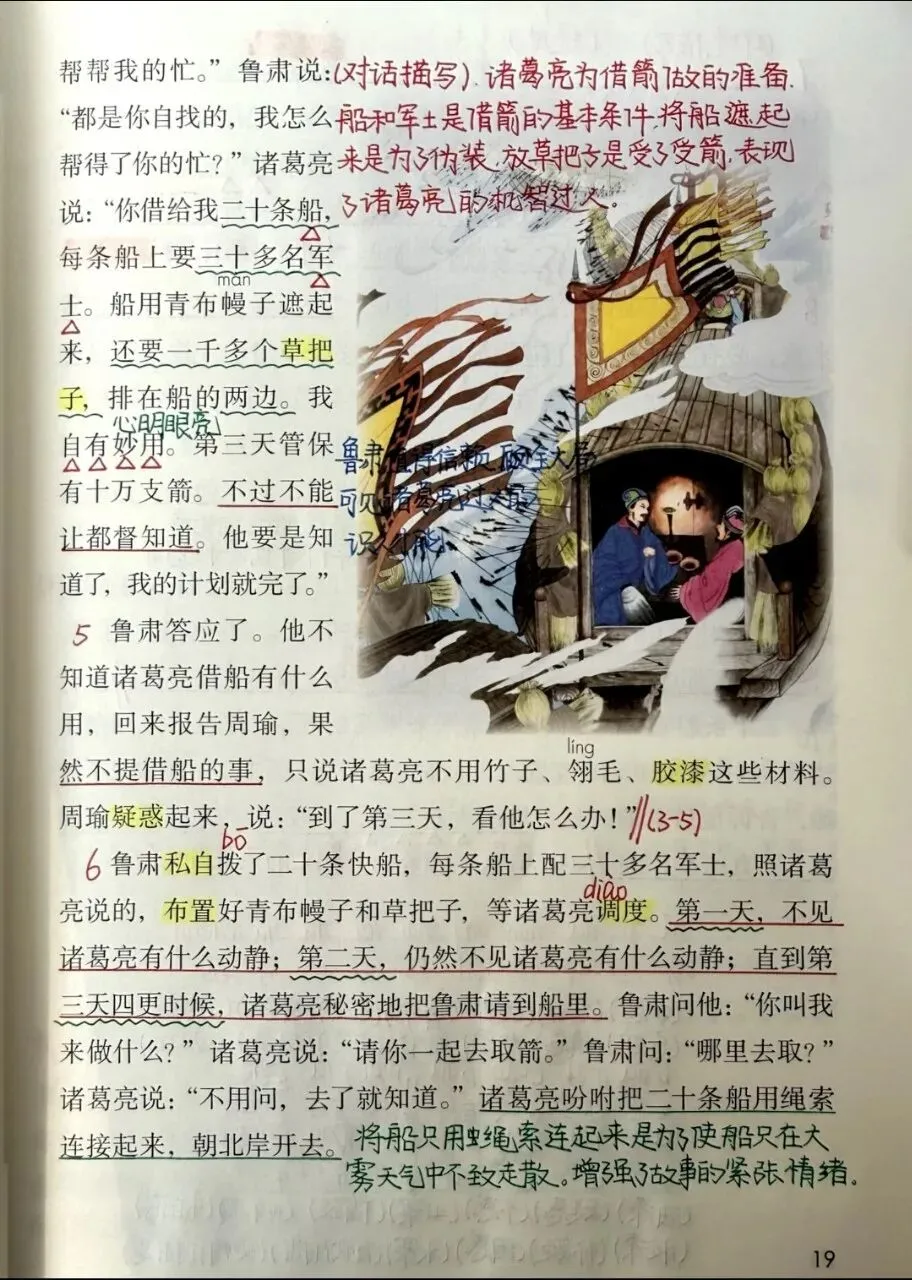 帮帮我的忙。”鲁肃说：
(对话描写)．诸葛亮为借箭做的准备.
“都是你自找的，我怎么
船和军士是借箭的基本条件,将船遮起
帮得了你的忙？”诸葛亮
来是为了伪装,放草把子是受了受箭,表现
说：“你借给我二十条船，
了诸葛亮的机智过人。
每条船上要三十多名军
màn
士。船用青布幔子遮起
来，还要一千多个草把
子，排在船的两边。我
心明眼亮
自有妙用。第三天管保
鲁肃值得信赖 大局
有十万支箭。不过不能
可见诸葛亮过人
让都督知道。他要是知
识人才能
道了，我的计划就完了。”
5 鲁肃答应了。他不
知道诸葛亮借船有什么
用，回来报告周瑜，果
líng
然不提借船的事，只说诸葛亮不用竹子、翎毛、胶漆这些材料。
周瑜疑惑起来，说：“到了第三天，看他怎么办！”∥(3-5)
bō
6 鲁肃私自拨了二十条快船，每条船上配三十多名军士，照诸葛
diào
亮说的，布置好青布幔子和草把子，等诸葛亮调度。第一天，不见
诸葛亮有什么动静；第二天，仍然不见诸葛亮有什么动静；直到第
三天四更时候，诸葛亮秘密地把鲁肃请到船里。鲁肃问他：“你叫我
来做什么？”诸葛亮说：“请你一起去取箭。”鲁肃问：“哪里去取？”
诸葛亮说：“不用问，去了就知道。”诸葛亮吩咐把二十条船用绳索
连接起来，朝北岸开去。
将船只用绳索连起来是为了使船只在大
雾天气中不致走散。增强了故事的紧张情绪。
19